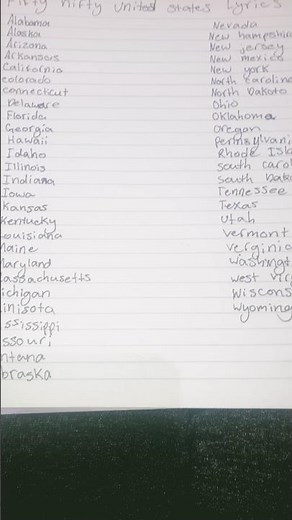 Fifty nifty united states Lyrics
Alabama
Alaska
Arizona
Arkansas
California
colorado
connecticut
Delaware
Florida
Georgia
Hawaii
Idaho
Illinois
Indiana
Iowa
Kansas
Kentucky
ouisiana
Maine
Maryland
assachusetts
ichigan
inisota
ississippi
ssouri
ntana
braska
Nevada
New hampshire
New jersey
New mexico
New york
North caroline
North Dakota
Ohio
Oklahoma
Oregon
Pennsylvani
Rhode Isl
South carol
South Dakot
Tennessee
Texas
Utah
vermont
verginia
Washingt
west vir
Wiscons
Wyoming